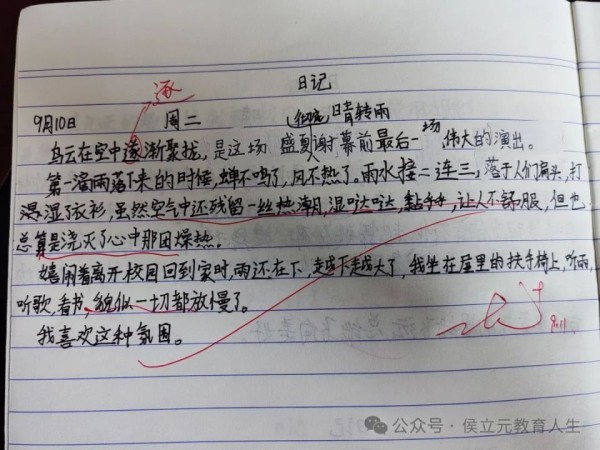 逐
日记
9月10日 周二 (彻底)晴转雨
乌云在空中逐渐聚拢,是这场 盛夏谢幕前最后一场 伟大的演出。
第一滴雨落下来的时候,蝉不鸣了,风不热了。雨水接二连三,落于人们肩头,打
湿了衣衫,虽然空气中还残留一丝热潮,湿哒哒,黏乎乎,让人不舒服,但也
总算是浇灭了心中那团燥热。
嬉闹着离开校园回到家时,雨还在下,越下越大了,我坐在屋里的扶手椅上,听雨,
听歌,看书,貌似一切都放慢了。
我喜欢这种氛围。
9.11
公众号·侯立元教育人生